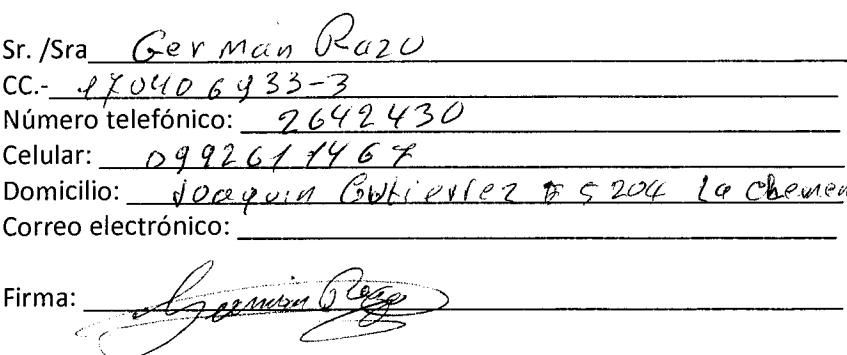 Sr. /Sra German Razo
CC.- 170406933-3
Número telefónico: 2642430
Celular: 0992611467
Domicilio: Joaquin Gutierrez 5204 La
Correo electrónico:
Firma: German Razo